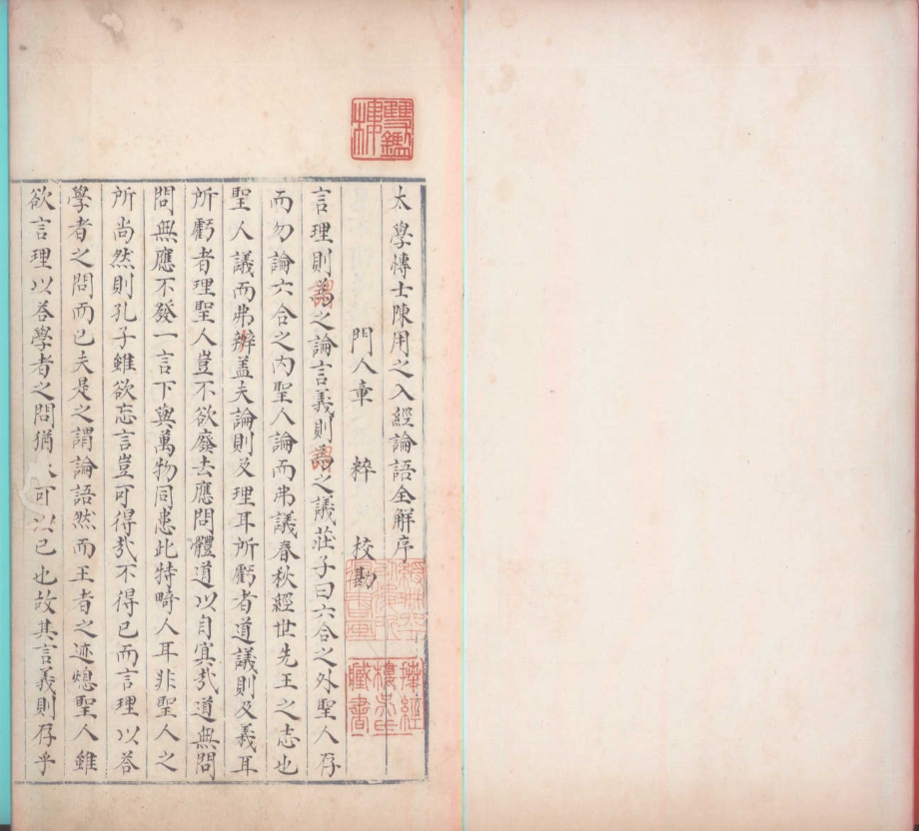 雙鑑樓
太學愽士陳用之入經論語全解序
門人章　粹　校勘
言理則謂之論言義則謂之議莊子曰六合之外聖人存
而勿論六合之內聖人論而弗議春秋經世先王之志也
聖人議而弗辨盖夫論則及理耳所虧者道議則及義耳
所虧者理聖人豈不欲廢去應問體道以自冥哉道無問
問無應不發一言下與萬物同患此特畸人耳非聖人之
所尚然則孔子雖欲忘言豈可得哉不得已而言理以荅
學者之問而已夫是之謂論語然而王者之迹熄聖人雖
欲言理以荅學者之問猶可以已也故其言義則存乎